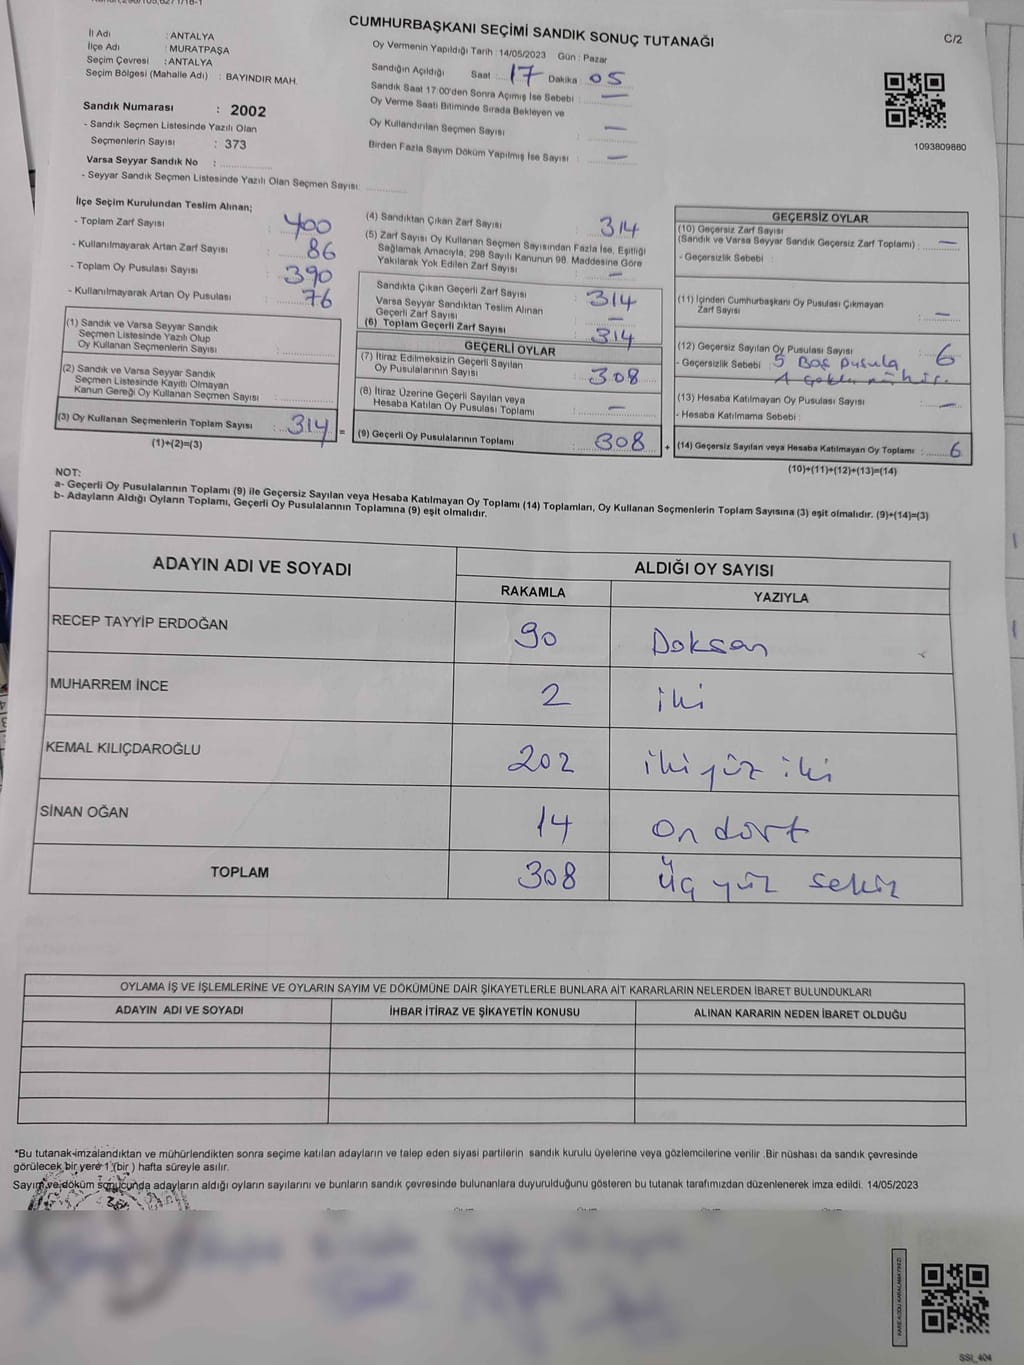 CUMHURBAŞKANI SEÇİMİ SANDIK SONUÇ TUTANAĞI
C/2
İl Adı : ANTALYA
İlçe Adı : MURATPAŞA
Seçim Çevresi : ANTALYA
Seçim Bölgesi (Mahalle Adı) : BAYINDIR MAH.
Oy Vermenin Yapıldığı Tarih : 14/05/2023 Gün : Pazar
Sandığın Açıldığı Saat : 17 Dakika : 05
Sandık Saat 17:00'den Sonra Açımış İse Sebebi : —
Oy Verme Saati Bitiminde Sırada Bekleyen ve
Oy Kullandırılan Seçmen Sayısı : —
Birden Fazla Sayım Döküm Yapılmış İse Sayısı : —
1093809880
Sandık Numarası : 2002
- Sandık Seçmen Listesinde Yazılı Olan
Seçmenlerin Sayısı : 373
Varsa Seyyar Sandık No :
- Seyyar Sandık Seçmen Listesinde Yazılı Olan Seçmen Sayısı:
İlçe Seçim Kurulundan Teslim Alınan;
- Toplam Zarf Sayısı : 400
- Kullanılmayarak Artan Zarf Sayısı : 86
- Toplam Oy Pusulası Sayısı : 390
- Kullanılmayarak Artan Oy Pusulası : 76
(1) Sandık ve Varsa Seyyar Sandık
Seçmen Listesinde Yazılı Olup
Oy Kullanan Seçmenlerin Sayısı :
(2) Sandık ve Varsa Seyyar Sandık
Seçmen Listesinde Kayıtlı Olmayan
Kanun Gereği Oy Kullanan Seçmen Sayısı :
(3) Oy Kullanan Seçmenlerin Toplam Sayısı : 314
(1)+(2)=(3)
(4) Sandıktan Çıkan Zarf Sayısı : 314
(5) Zarf Sayısı Oy Kullanan Seçmen Sayısından Fazla İse, Eşitliği
Sağlamak Amacıyla, 298 Sayılı Kanunun 98. Maddesine Göre
Yakılarak Yok Edilen Zarf Sayısı : —
Sandıkta Çıkan Geçerli Zarf Sayısı : 314
Varsa Seyyar Sandıktan Teslim Alınan
Geçerli Zarf Sayısı : —
(6) Toplam Geçerli Zarf Sayısı : 314
GEÇERLİ OYLAR
(7) İtiraz Edilmeksizin Geçerli Sayılan
Oy Pusulalarının Sayısı : 308
(8) İtiraz Üzerine Geçerli Sayılan veya
Hesaba Katılan Oy Pusulası Toplamı : —
(9) Geçerli Oy Pusulalarının Toplamı : 308
GEÇERSİZ OYLAR
(10) Geçersiz Zarf Sayısı
(Sandık ve Varsa Seyyar Sandık Geçersiz Zarf Toplamı) : —
- Geçersizlik Sebebi :
(11) İçinden Cumhurbaşkanı Oy Pusulası Çıkmayan
Zarf Sayısı : —
(12) Geçersiz Sayılan Oy Pusulası Sayısı : 6
- Geçersizlik Sebebi : 5 Boş pusula
(13) Hesaba Katılmayan Oy Pusulası Sayısı : —
- Hesaba Katılmama Sebebi :
(14) Geçersiz Sayılan veya Hesaba Katılmayan Oy Toplamı : 6
(10)+(11)+(12)+(13)=(14)
NOT:
a- Geçerli Oy Pusulalarının Toplamı (9) ile Geçersiz Sayılan veya Hesaba Katılmayan Oy Toplamı (14) Toplamları, Oy Kullanan Seçmenlerin Toplam Sayısına (3) eşit olmalıdır. (9)+(14)=(3)
b- Adayların Aldığı Oyların Toplamı, Geçerli Oy Pusulalarının Toplamına (9) eşit olmalıdır.
ADAYIN ADI VE SOYADI
ALDIĞI OY SAYISI
RAKAMLA YAZIYLA
RECEP TAYYİP ERDOĞAN 90 Doksan
MUHARREM İNCE 2 iki
KEMAL KILIÇDAROĞLU 202 iki yüz iki
SİNAN OĞAN 14 On dört
TOPLAM 308 Üç yüz sekiz
OYLAMA İŞ VE İŞLEMLERİNE VE OYLARIN SAYIM VE DÖKÜMÜNE DAİR ŞİKAYETLERLE BUNLARA AİT KARARLARIN NELERDEN İBARET BULUNDUKLARI
ADAYIN ADI VE SOYADI İHBAR İTİRAZ VE ŞİKAYETİN KONUSU ALINAN KARARIN NEDEN İBARET OLDUĞU
*Bu tutanak imzalandıktan ve mühürlendikten sonra seçime katılan adayların ve talep eden siyasi partilerin sandık kurulu üyelerine veya gözlemcilerine verilir .Bir nüshası da sandık çevresinde
görülecek bir yere 1 (bir ) hafta süreyle asılır.
Sayım ve döküm sonucunda adayların aldığı oyların sayılarını ve bunların sandık çevresinde bulunanlara duyurulduğunu gösteren bu tutanak tarafımızdan düzenlenerek imza edildi. 14/05/2023
KARE KODU KARALAMAYINIZ!
SSI_404